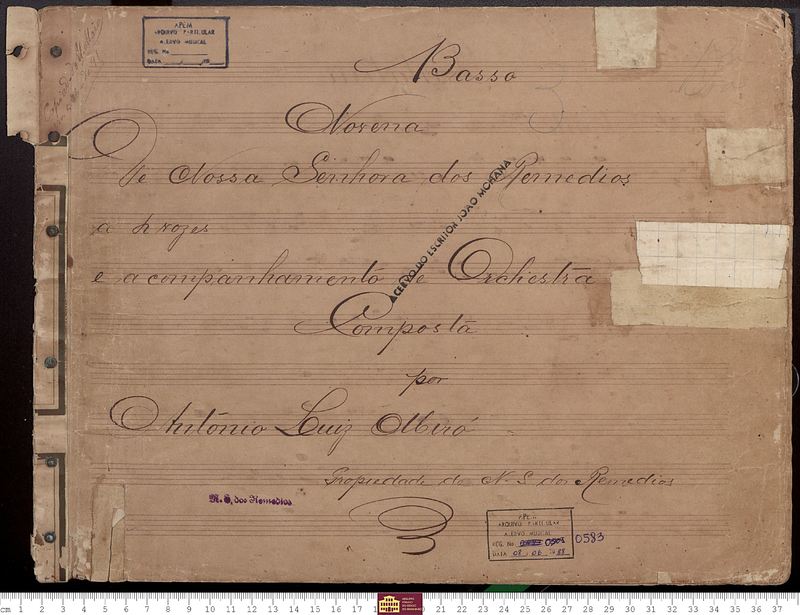 APEM
ARQUIVO PARTICULAR
ACERVO MUSICAL
REG. No
DATA
Basso
Novena
De Nossa Senhora dos Remedios
a 4 vozes
e acompanhamento de Orchestra
ACERVO DO ESCRITOR JOÃO MOHANA
Composta
por
António Luiz Miró
Propiedade de N. S. dos Remedios
N. S. dos Remedios
APEM
ARQUIVO PARTICULAR
ACERVO MUSICAL
REG. No. 0583
DATA 08 06 1988
cm 1 2 3 4 5 6 7 8 9 10 11 12 13 14 15 16 17 21 22 23 24 25 26 27 28 29 30 31 32 33 34 35 36 37